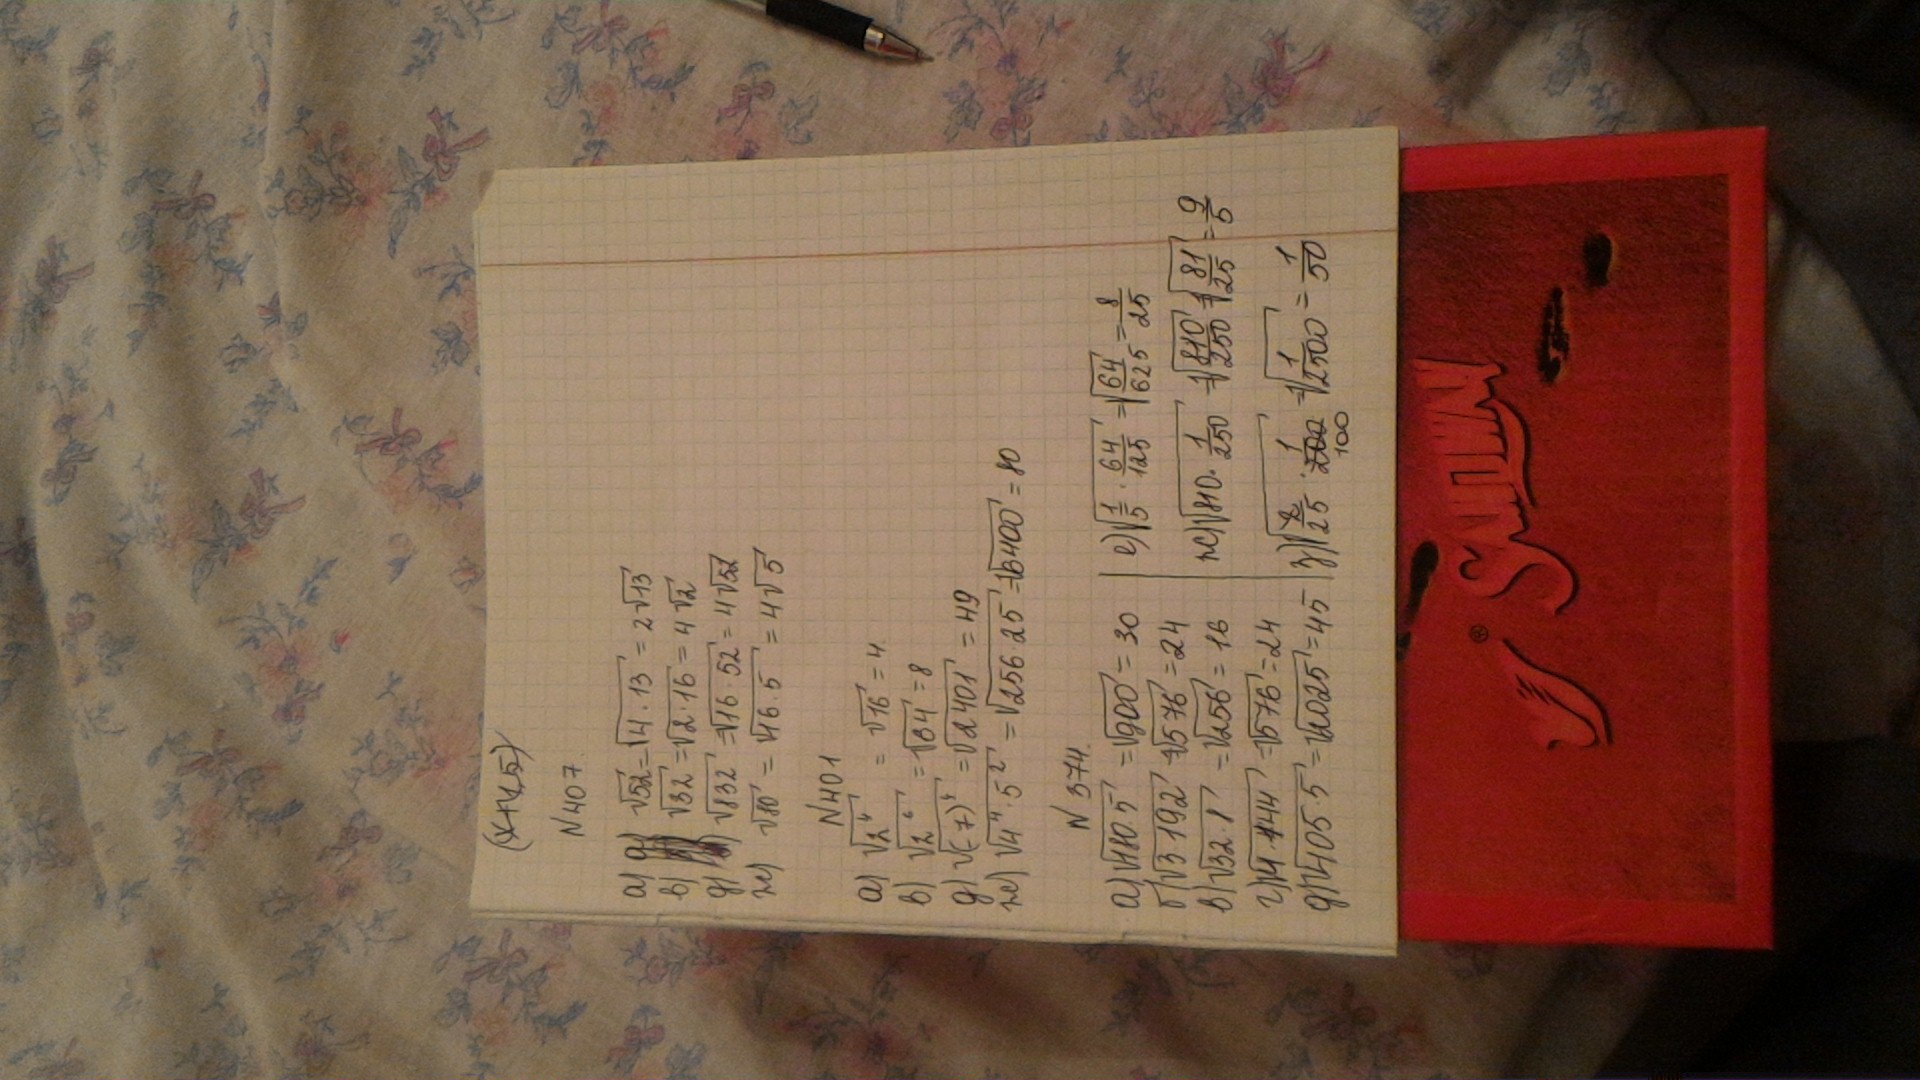 N 407.
а) √52 = √4·13 = 2√13
в) √32 = √2·16 = 4√2
д) √832 = √16·52 = 4√52
ж) √80 = √16·5 = 4√5
N 401
а) √2⁴ = √16 = 4.
в) √2⁶ = √64 = 8
д) √(-7)⁴ = √2401 = 49
ж) √4⁴·5² = √256·25 = √6400 = 80
N 374.
а) √180·5 = √900 = 30
б) √3·192 = √576 = 24
в) √32·8 = √256 = 16
г) √4·144 = √576 = 24
д) √405·5 = √2025 = 45
е) √1/5·64/125 = √64/625 = 8/25
ж) √810·1/250 = √810/250 = √81/25 = 9/5
з) 1/100 = √1/2500 = 1/50
SALTMAN®